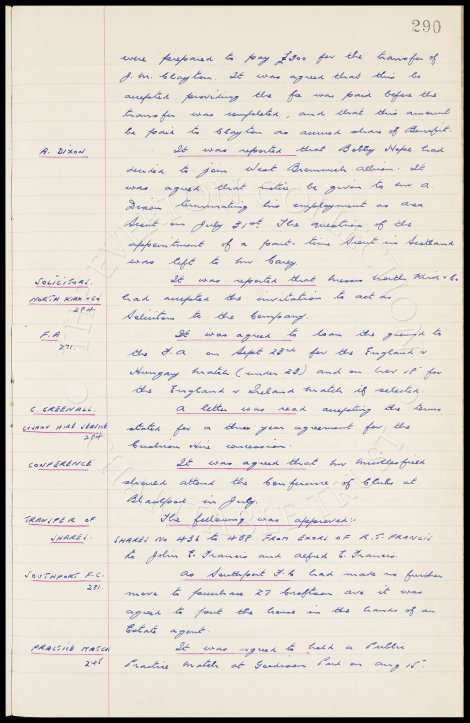 290
were prepared to pay £300 for the transfer of
J. M. Clayton. It was agreed that this be
accepted providing the fee was paid before the
transfer was completed, and that this amount
be paid to Clayton as accrued share of Benefit.
A. DIXON
It was reported that Bobby Hope had
decided to join West Bromwich Albion. It
was agreed that notice be given to Mr A.
Dixon terminating his employment as area
Scout on July 31st. The question of the
appointment of a part-time Scout in Scotland
was left to Mr Carey.
SOLICITORS.
NORTH KIRK & CO
284
It was reported that Messrs North Kirk & Co.
had accepted the invitation to act as
Solicitors to the Company.
F.A.
271.
It was agreed to loan the ground to
the F.A on Sept 23rd for the England v
Hungary match (under 23) and on Nov 18th for
the England v Ireland match if selected.
C. GREENALL.
CUSHION HIRE SERVICE
284
A letter was read accepting the terms
stated for a three year agreement for the
Cushion Hire concession.
CONFERENCE
It was agreed that Mr Micklesfield
should attend the Conference of Clubs at
Blackpool in July.
TRANSFER OF
SHARES.
The following was approved:-
SHARES NO 436 TO 438 FROM EXORS OF R.T. FRANCIS
to John E. Francis and Alfred E. Francis.
SOUTHPORT F.C.
281.
As Southport F.C had made no further
move to purchase 27 Croftson Ave it was
agreed to put the house in the hands of an
Estate agent.
PRACTICE MATCH
248
It was agreed to hold a Public
Practice Match at Goodison Park on Aug 15th.